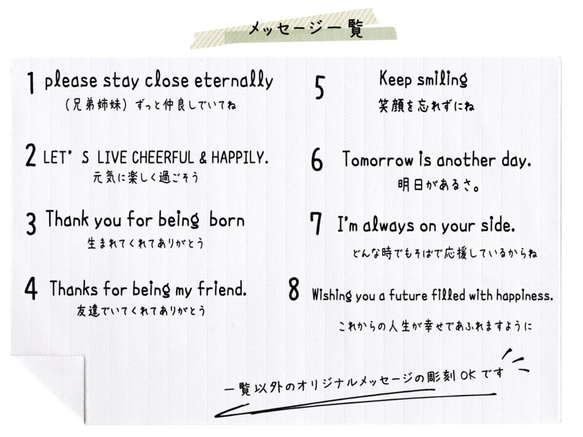 メッセージ一覧
1 please stay close eternally
（兄弟姉妹）ずっと仲良しでいてね
2 LET'S LIVE CHEERFUL & HAPPILY.
元気に楽しく過ごそう
3 Thank you for being born
生まれてくれてありがとう
4 Thanks for being my friend.
友達でいてくれてありがとう
5 Keep smiling
笑顔を忘れずにね
6 Tomorrow is another day.
明日があるさ。
7 I'm always on your side.
どんな時でもそばで応援しているからね
8 Wishing you a future filled with happiness.
これからの人生が幸せであふれますように
一覧以外のオリジナルメッセージの彫刻OKです